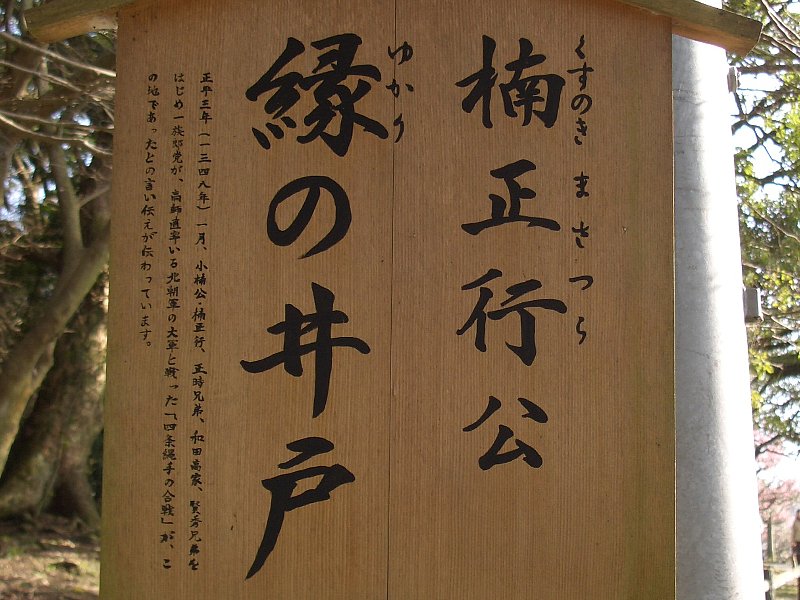 くすのき まさつら
楠正行公
ゆかり
縁の井戸
正平三年(一三四八年)一月、小楠公・楠正行、正時兄弟、和田高家、賢秀兄弟を
はじめ一族郎党が、高師直率いる北朝軍の大軍と戦った「四条縄手の合戦」が、こ
の地であったとの言い伝えが伝わっています。